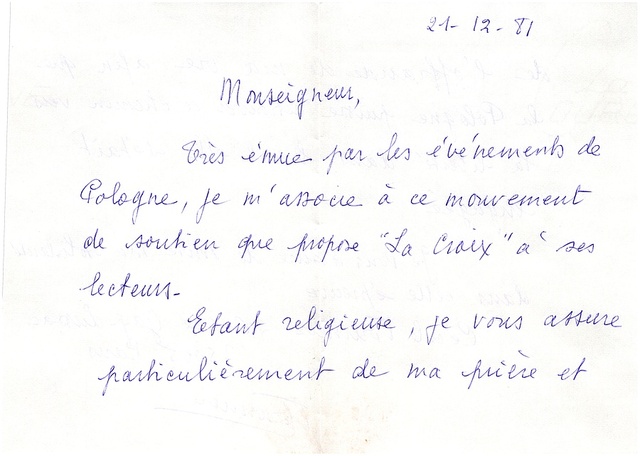 21-12-81
Monseigneur,
Très émue par les événements de
Pologne, je m'associe à ce mouvement
de soutien que propose "La Croix" à ses
lecteurs-
Etant religieuse, je vous assure
particulièrement de ma prière et